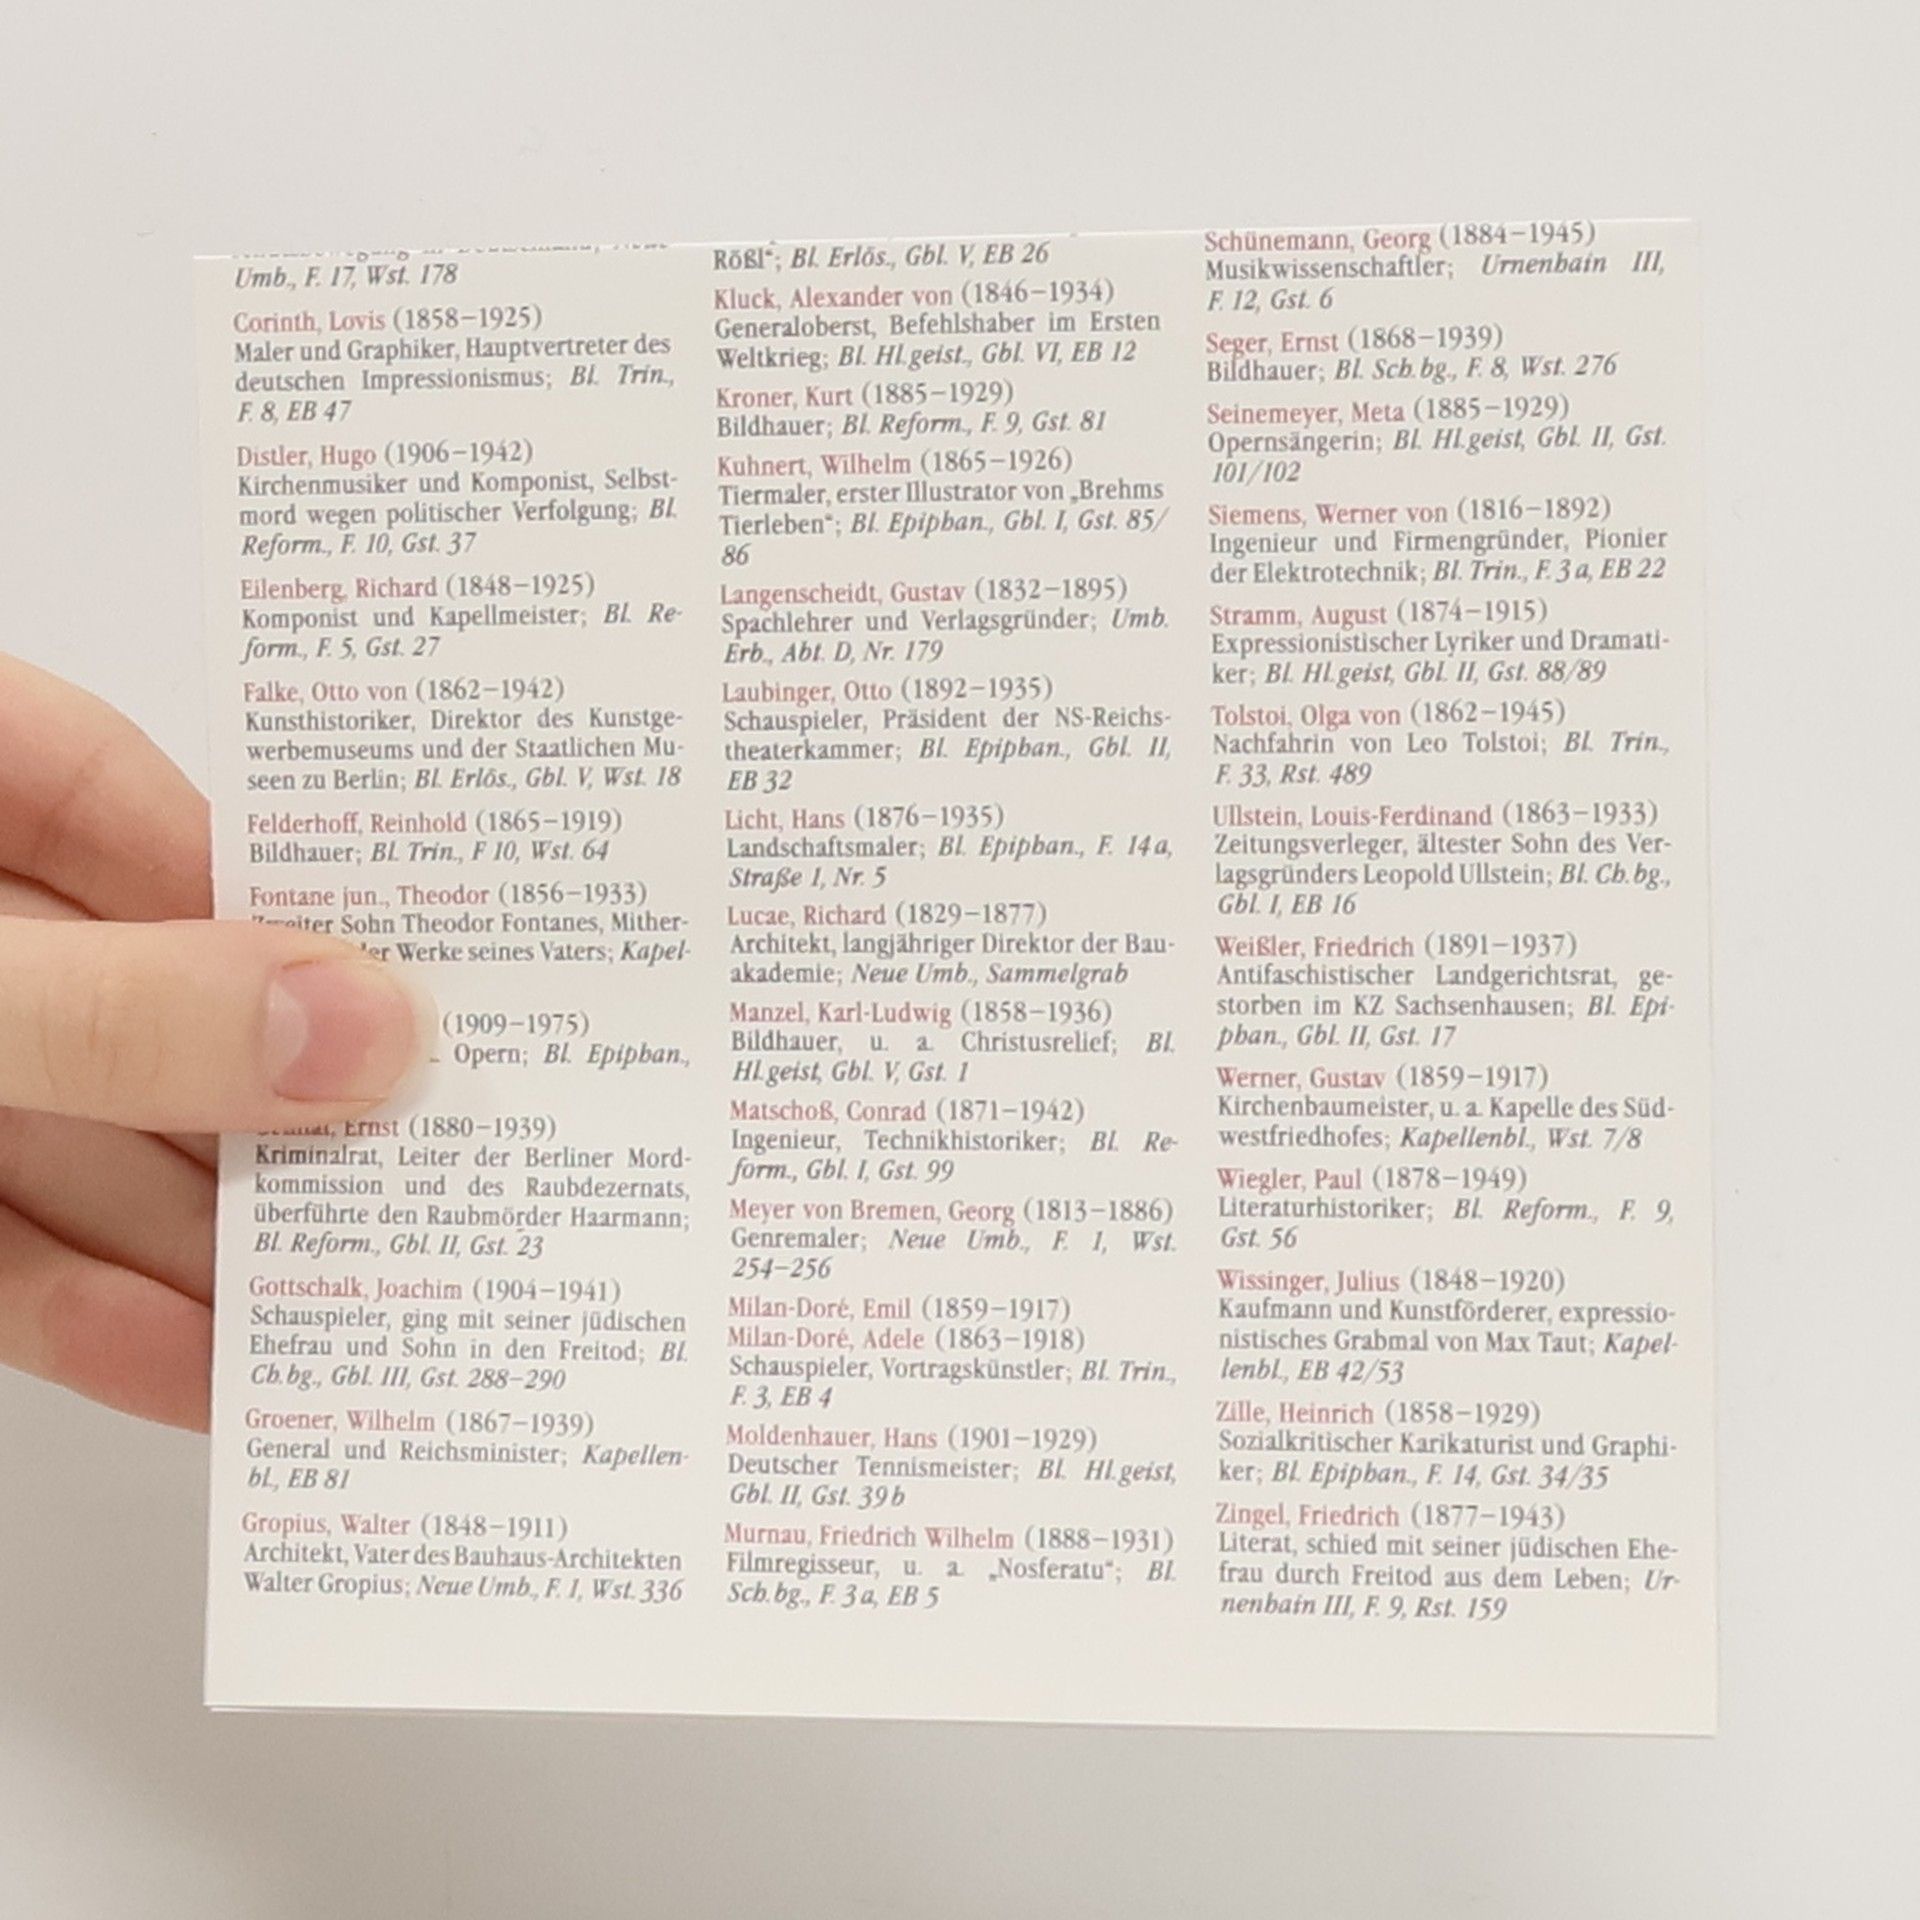 Umb., F. 17, Wst. 178
Corinth, Lovis (1858–1925)
Maler und Graphiker, Hauptvertreter des
deutschen Impressionismus; Bl. Trin.,
F. 8, EB 47
Distler, Hugo (1906–1942)
Kirchenmusiker und Komponist, Selbst-
mord wegen politischer Verfolgung; Bl.
Reform., F. 10, Gst. 37
Eilenberg, Richard (1848–1925)
Komponist und Kapellmeister; Bl. Re-
form., F. 5, Gst. 27
Falke, Otto von (1862–1942)
Kunsthistoriker, Direktor des Kunstge-
werbemuseums und der Staatlichen Mu-
seen zu Berlin; Bl. Erlös., Gbl. V, Wst. 18
Felderhoff, Reinhold (1865–1919)
Bildhauer; Bl. Trin., F 10, Wst. 64
Fontane jun., Theodor (1856–1933)
Zweiter Sohn Theodor Fontanes, Mither-
der Werke seines Vaters; Kapel-
(1909–1975)
Opern; Bl. Epiphan.,
Ernst (1880–1939)
Kriminalrat, Leiter der Berliner Mord-
kommission und des Raubdezernats,
überführte den Raubmörder Haarmann;
Bl. Reform., Gbl. II, Gst. 23
Gottschalk, Joachim (1904–1941)
Schauspieler, ging mit seiner jüdischen
Ehefrau und Sohn in den Freitod; Bl.
Ch.bg., Gbl. III, Gst. 288–290
Groener, Wilhelm (1867–1939)
General und Reichsminister; Kapellen-
bl., EB 81
Gropius, Walter (1848–1911)
Architekt, Vater des Bauhaus-Architekten
Walter Gropius; Neue Umb., F. 1, Wst. 336
Rößl“; Bl. Erlös., Gbl. V, EB 26
Kluck, Alexander von (1846–1934)
Generaloberst, Befehlshaber im Ersten
Weltkrieg; Bl. Hl.geist., Gbl. VI, EB 12
Kroner, Kurt (1885–1929)
Bildhauer; Bl. Reform., F. 9, Gst. 81
Kuhnert, Wilhelm (1865–1926)
Tiermaler, erster Illustrator von „Brehms
Tierleben“; Bl. Epiphan., Gbl. I, Gst. 85/
86
Langenscheidt, Gustav (1832–1895)
Spachlehrer und Verlagsgründer; Umb.
Erb., Abt. D, Nr. 179
Laubinger, Otto (1892–1935)
Schauspieler, Präsident der NS-Reichs-
theaterkammer; Bl. Epiphan., Gbl. II,
EB 32
Licht, Hans (1876–1935)
Landschaftsmaler; Bl. Epiphan., F. 14a,
Straße 1, Nr. 5
Lucae, Richard (1829–1877)
Architekt, langjähriger Direktor der Bau-
akademie; Neue Umb., Sammelgrab
Manzel, Karl-Ludwig (1858–1936)
Bildhauer, u. a. Christusrelief; Bl.
Hl.geist, Gbl. V, Gst. 1
Matschoß, Conrad (1871–1942)
Ingenieur, Technikhistoriker; Bl. Re-
form., Gbl. I, Gst. 99
Meyer von Bremen, Georg (1813–1886)
Genremaler; Neue Umb., F. 1, Wst.
254–256
Milan-Doré, Emil (1859–1917)
Milan-Doré, Adele (1863–1918)
Schauspieler, Vortragskünstler; Bl. Trin.,
F. 3, EB 4
Moldenhauer, Hans (1901–1929)
Deutscher Tennismeister; Bl. Hl.geist,
Gbl. II, Gst. 39b
Murnau, Friedrich Wilhelm (1888–1931)
Filmregisseur, u. a. „Nosferatu“; Bl.
Sch.bg., F. 3a, EB 5
Schünemann, Georg (1884–1945)
Musikwissenschaftler; Urnenhain III,
F. 12, Gst. 6
Seger, Ernst (1868–1939)
Bildhauer; Bl. Sch.bg., F. 8, Wst. 276
Seinemeyer, Meta (1885–1929)
Opernsängerin; Bl. Hl.geist, Gbl. II, Gst.
101/102
Siemens, Werner von (1816–1892)
Ingenieur und Firmengründer, Pionier
der Elektrotechnik; Bl. Trin., F. 3a, EB 22
Stramm, August (1874–1915)
Expressionistischer Lyriker und Dramati-
ker; Bl. Hl.geist, Gbl. II, Gst. 88/89
Tolstoi, Olga von (1862–1945)
Nachfahrin von Leo Tolstoi; Bl. Trin.,
F. 33, Rst. 489
Ullstein, Louis-Ferdinand (1863–1933)
Zeitungsverleger, ältester Sohn des Ver-
lagsgründers Leopold Ullstein; Bl. Ch.bg.,
Gbl. I, EB 16
Weißler, Friedrich (1891–1937)
Antifaschistischer Landgerichtsrat, ge-
storben im KZ Sachsenhausen; Bl. Epi-
phan., Gbl. II, Gst. 17
Werner, Gustav (1859–1917)
Kirchenbaumeister, u. a. Kapelle des Süd-
westfriedhofes; Kapellenbl., Wst. 7/8
Wiegler, Paul (1878–1949)
Literaturhistoriker; Bl. Reform., F. 9,
Gst. 56
Wissinger, Julius (1848–1920)
Kaufmann und Kunstförderer, expressio-
nistisches Grabmal von Max Taut; Kapel-
lenbl., EB 42/53
Zille, Heinrich (1858–1929)
Sozialkritischer Karikaturist und Graphi-
ker; Bl. Epiphan., F. 14, Gst. 34/35
Zingel, Friedrich (1877–1943)
Literat, schied mit seiner jüdischen Ehe-
frau durch Freitod aus dem Leben; Ur-
nenhain III, F. 9, Rst. 159